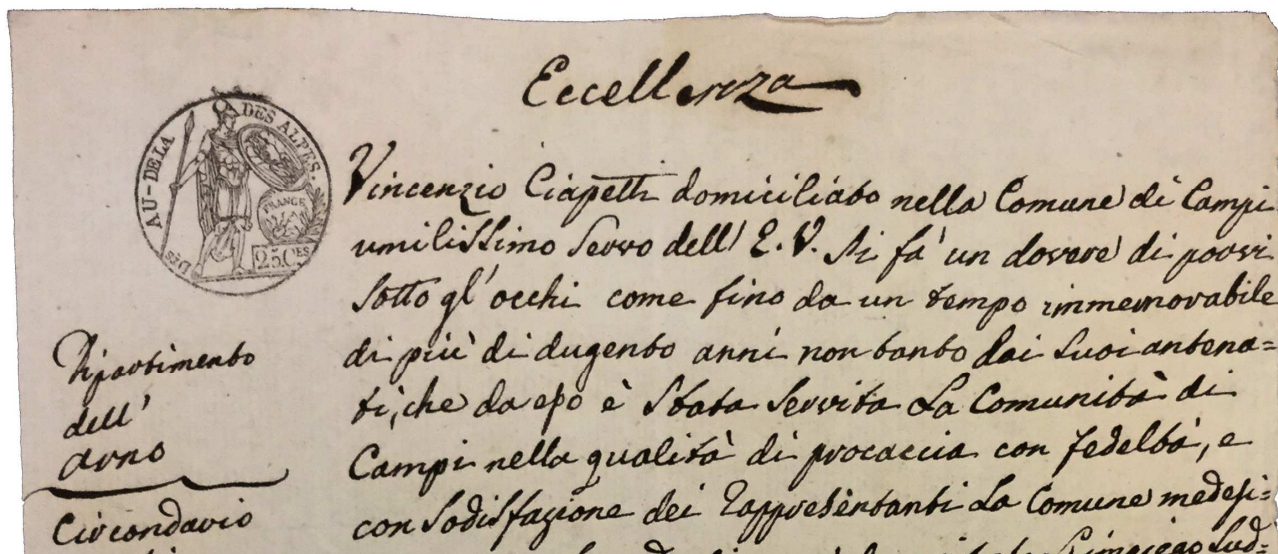 Eccellenza
AU-DELA DES ALPES.
DÉP.
FRANCE
25 CES
Vincenzio Ciapetti domiciliato nella Comune di Campi
umilissimo servo dell' E. V. si fà un dovere di porvi
sotto gl' occhi come fino da un tempo immemorabile
di più di dugento anni non tanto dai suoi antena=
ti, che da esso è stata servita la Comunità di
Campi nella qualità di procaccia con fedeltà, e
con sodisfazione dei Rappresentanti la Comune medesi=
impiego sud=
Dipartimento
dell'
Arno
Circondario